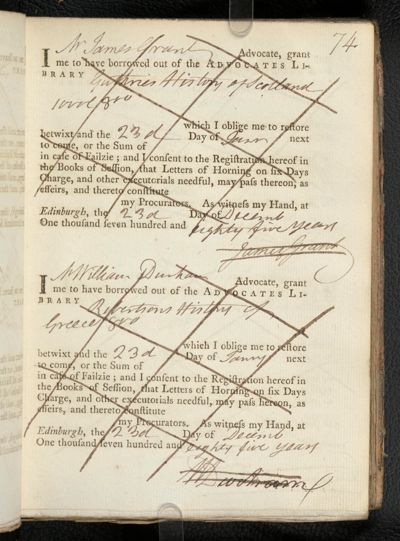 74
I Mr James Grant Advocate, grant
me to have borrowed out of the ADVOCATES LI-
BRARY Guthries History of Scotland
10 vol 8vo
which I oblige me to reſtore
betwixt and the 23d Day of Janry next
to come, or the Sum of
in caſe of Failzie; and I conſent to the Regiſtration hereof in
the Books of Seſſion, that Letters of Horning on ſix Days
Charge, and other executorials needful, may paſs thereon, as
effeirs, and thereto conſtitute
my Procurators. As witneſs my Hand, at
Edinburgh, the 23d Day of Decemb
One thouſand ſeven hundred and eighty five years
James Grant
I Mr William Dunham Advocate, grant
me to have borrowed out of the ADVOCATES LI-
BRARY Robertsons History of
Greece 8vo
which I oblige me to reſtore
betwixt and the 23d Day of Janry next
to come, or the Sum of
in caſe of Failzie; and I conſent to the Regiſtration hereof in
the Books of Seſſion, that Letters of Horning on ſix Days
Charge, and other executorials needful, may paſs hereon, as
effeirs, and thereto conſtitute
my Procurators. As witneſs my Hand, at
Edinburgh, the 23d Day of Decemb
One thouſand ſeven hundred and eighty five years